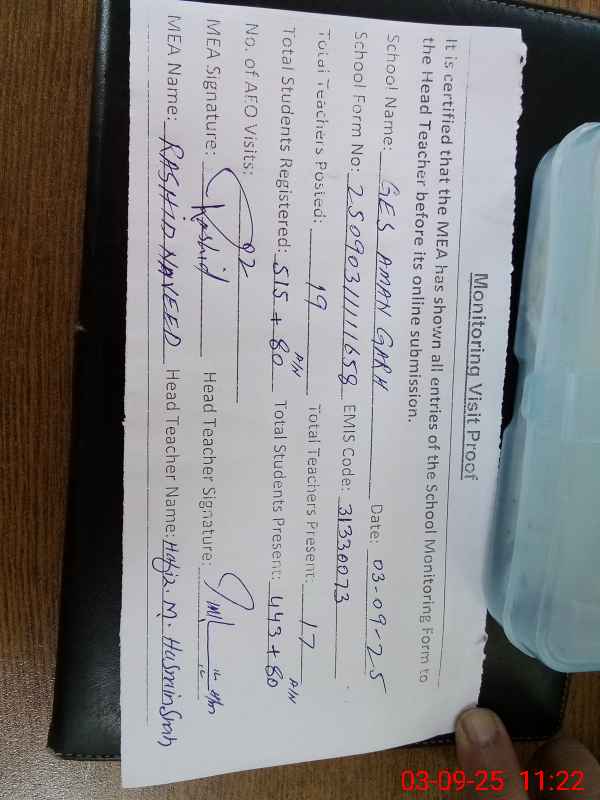 Monitoring Visit Proof
It is certified that the MEA has shown all entries of the School Monitoring Form to
the Head Teacher before its online submission.
School Name: GES AMAN GARH Date: 03-09-25
School Form No: 2509031111658 EMIS Code: 31330073
Total Teachers Posted: 19 Total Teachers Present: 17
Total Students Registered: 515 + 80 P/N Total Students Present: 443 + 80 P/N
No. of AEO Visits: 02
MEA Signature: Rashid Head Teacher Signature:
MEA Name: RASHID NAVEED Head Teacher Name: Hafiz. M.
03-09-25 11:22